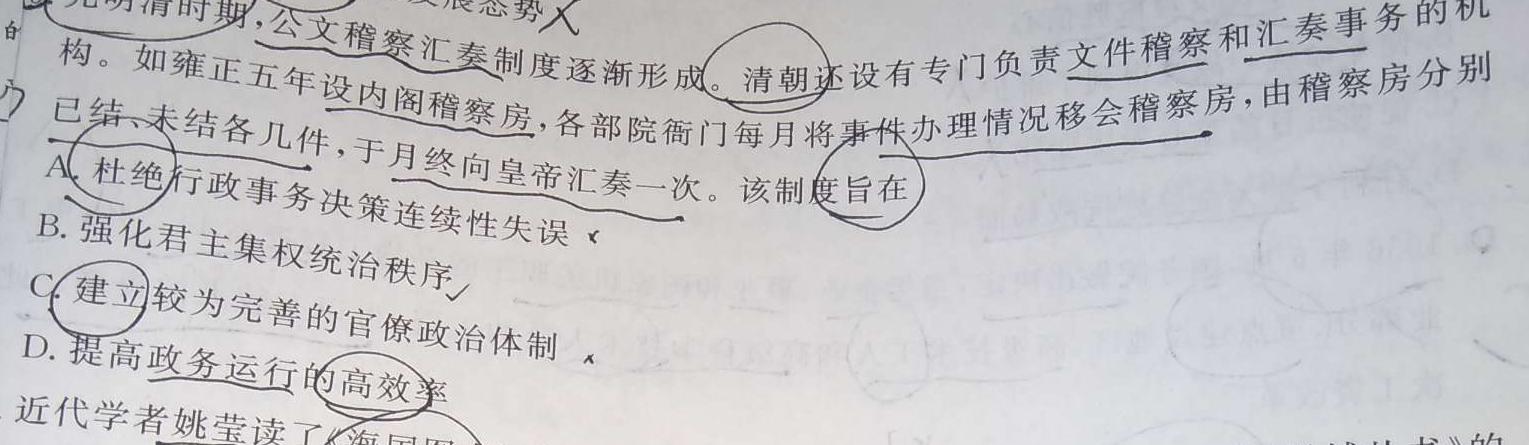 明清时期,公文稽察汇奏制度逐渐形成。清朝还设有专门负责文件稽察和汇奏事务的机
构。如雍正五年设内阁稽察房,各部院衙门每月将事件办理情况移会稽察房,由稽察房分别
已结、未结各几件,于月终向皇帝汇奏一次。该制度旨在
A. 杜绝行政事务决策连续性失误
B. 强化君主集权统治秩序
C. 建立较为完善的官僚政治体制
D. 提高政务运行的高效率
近代学者姚莹读了《海国